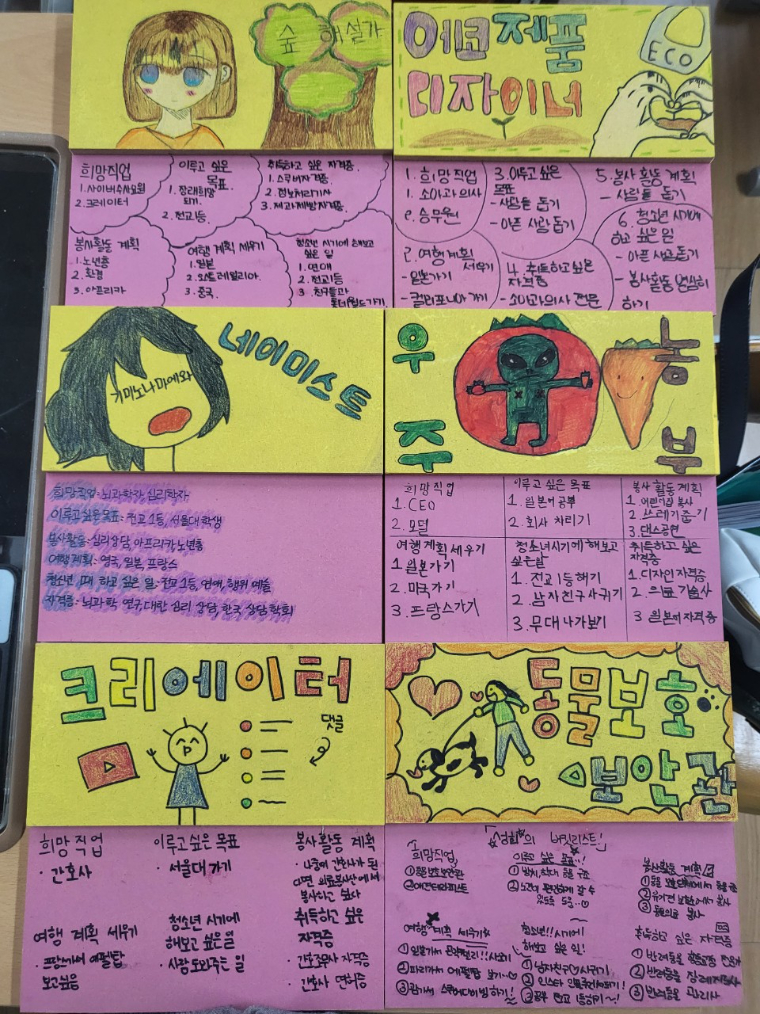 숲 해설가
희망직업
1. 사이버수사요원
2. 크레이터
이루고 싶은
목표.
1. 장래희망
되기.
2. 전교1등.
취득하고 싶은 자격증.
1. 스쿠버자격증.
2. 정보처리기사
3. 제과제빵자격증.
봉사활동 계획
1. 노년층
2. 환경
3. 아프리카
여행 계획 세우기
1. 일본
2. 오스트레일리아.
3. 중국.
청소년 시기에 해보고
싶은 일
1. 연애
2. 전교1등
3. 친구들과
롯데월드가기.
에코 제품
디자이너
ECO
1. 희망 직업
1. 소아과 의사
2. 승무원
3. 이루고 싶은
목표
- 사람들 돕기
- 아픈 사람 돕기
5. 봉사 활동 계획
- 사람들 돕기
2. 여행계획
세우기
- 일본가기
- 캘리포니아 가기
4. 취득하고 싶은
자격증
- 소아과의사 전문
6. 청소년 시기에
하고 싶은 일
- 아픈 사람 돕기
- 봉사활동 열심히
하기
네이미스트
키미노나마에와
희망직업: 뇌과학자, 심리학자
이루고싶은목표: 전교 1등, 서울대 학생
봉사활동: 심리상담, 아프리카, 노년층
여행계획: 영국, 일본, 프랑스
청소년 때 하고 싶은 일: 전교 1등, 연애, 행위 예술
자격증: 뇌과학 연구, 대한 심리 상담, 한국 상담 학회
우주
농부
희망직업
1. CEO
2. 모델
이루고 싶은 목표
1. 일본어 공부
2. 회사 차리기
봉사 활동 계획
1. 어린이집 봉사
2. 쓰레기 줍기
3. 댄스공연
여행 계획 세우기
1. 일본가기
2. 미국가기
3. 프랑스가기
청소년시기에 해보고
싶은일
1. 전교 1등하기
2. 남자친구 사귀기
3. 무대 나가보기
취득하고 싶은
자격증
1. 디자인 자격증
2. 의료 기술사
3. 일본어 자격증
크리에이터
댓글
희망 직업
· 간호사
이루고 싶은 목표
· 서울대 가기
봉사 활동 계획
· 나중에 간호사가 된
다면 의료봉사에서
봉사하고 싶다
여행 계획 세우기
· 프랑스가서 에펠탑
보고싶음
청소년 시기에
해보고 싶은일
· 사람 도와주는 일
취득하고 싶은
자격증
· 간호조무사 자격증
· 간호사 면허증
동물보호
보안관
의 버킷리스트!
희망직업,
①동물보호보안관
이루고 싶은 목표..!
봉사활동 계획
여행 계획 세우기
②파리가서 에펠탑 보기
③괌가서 스쿠버다이빙 하기!
청소년!! 시기에
해보고 싶은 일!
①남자친구 사귀기
취득하고 싶은 자격증
②반려동물 장례지도사
③반려동물 관리사